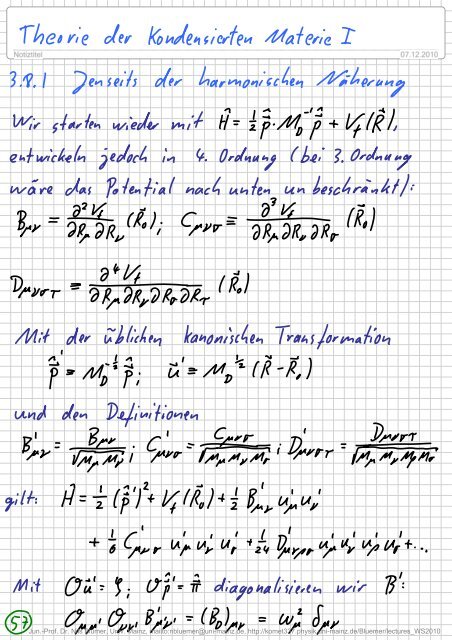 Theorie der Kondensierten Materie I
Notiztitel 07.12.2010
3.8.1 Jenseits der harmonischen Näherung
Wir starten wieder mit Ĥ = ½ p̂⃗·M_D⁻¹ p̂⃗ + V_f(R⃗),
entwickeln jedoch in 4. Ordnung (bei 3. Ordnung
wäre das Potential nach unten unbeschränkt):
B_μν = ∂²V_f / ∂R_μ ∂R_ν (R⃗₀); C_μνσ ≡ ∂³V_f / ∂R_μ ∂R_ν ∂R_σ (R⃗₀)
D_μνστ ≡ ∂⁴V_f / ∂R_μ ∂R_ν ∂R_σ ∂R_τ (R⃗₀)
Mit der üblichen kanonischen Transformation
p̂⃗' ≡ M_D^(-½) p̂⃗; u⃗' ≡ M_D^(½) (R⃗ - R⃗₀)
und den Definitionen
B'_μν = B_μν / √(M_μ M_ν); C'_μνσ = C_μνσ / √(M_μ M_ν M_σ); D'_μνστ = D_μνστ / √(M_μ M_ν M_ρ M_σ)
gilt: Ĥ = ½ (p̂⃗')² + V_f(R⃗₀) + ½ B'_μν u'_μ u'_ν
+ 1/6 C'_μνσ u'_μ u'_ν u'_σ + 1/24 D'_μνρσ u'_μ u'_ν u'_ρ u'_σ + ...
Mit O u⃗' = ζ; O p̂⃗' = π̂ diagonalisieren wir B':
57 Jun.-Prof. Dr.
O_μμ' O_νν' B'_μ'ν' = (B_D)_μν = ω_μ² δ_μν